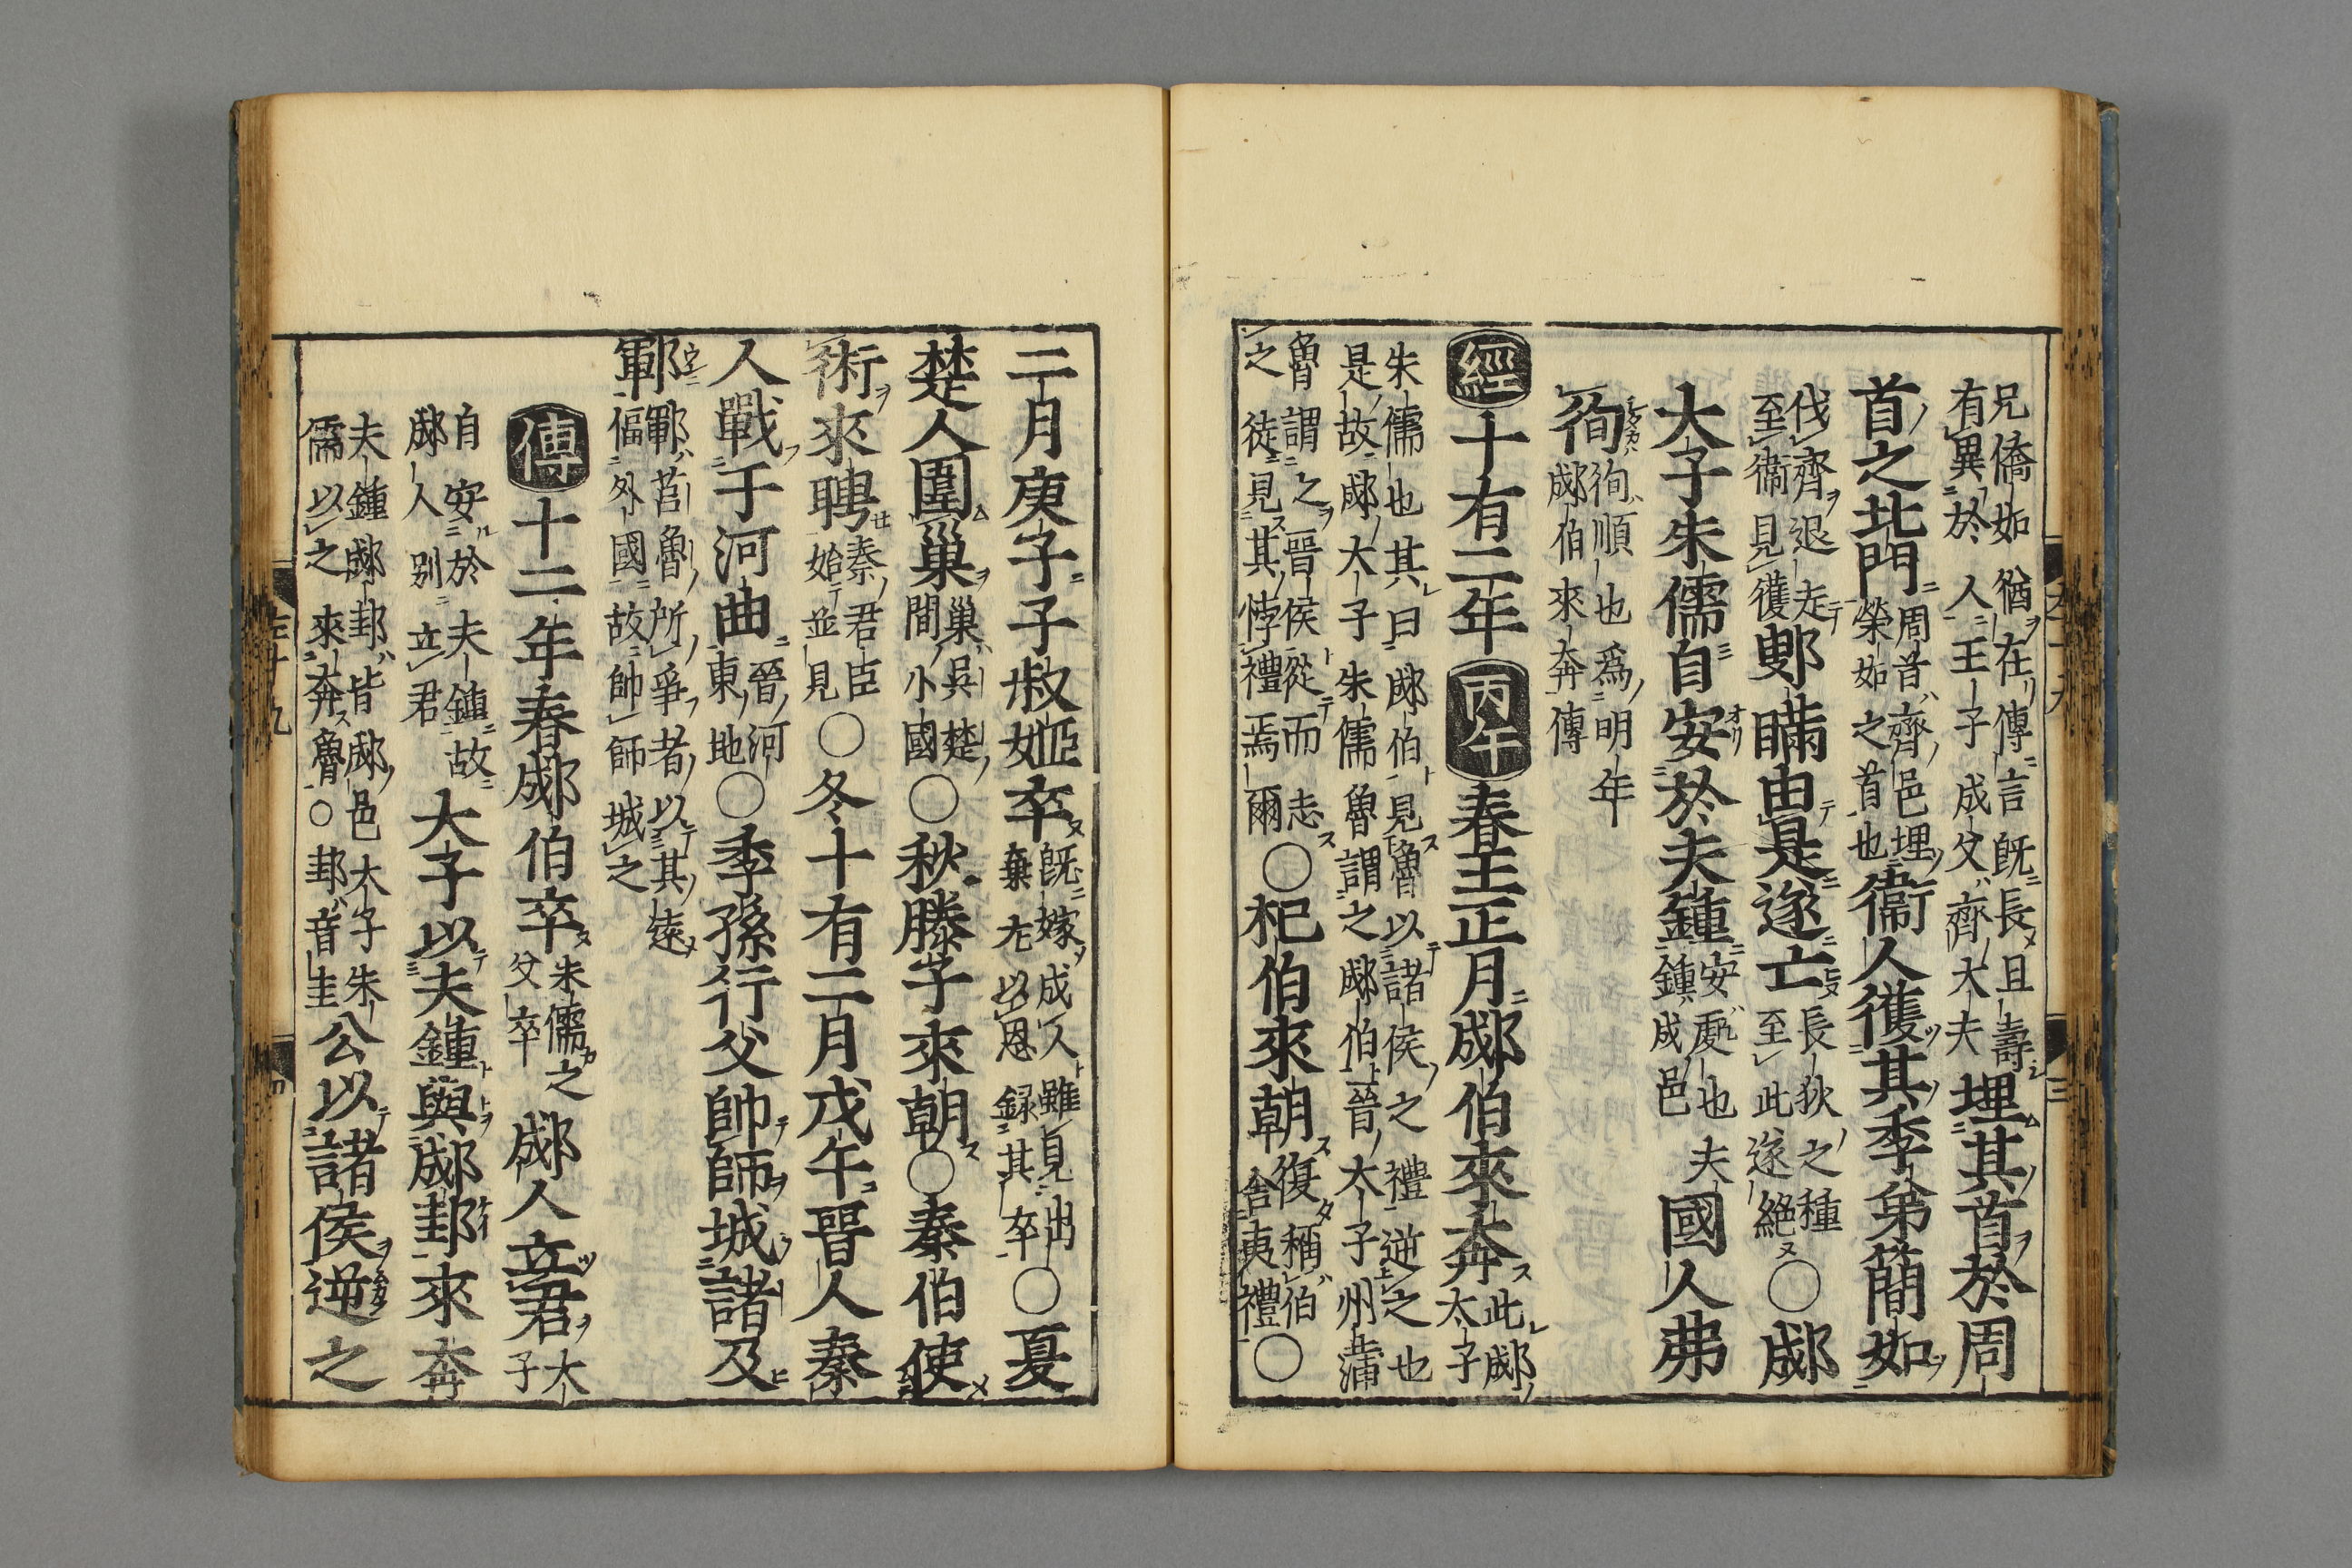 兄僑如猶在傳言既長且壽
有異於人王子成父齊大夫
埋其首於周
首之北門
周首齊邑埋
榮如之首也
衞人獲其季弟簡如
伐齊退走
至衞見獲
鄋瞞由是遂亡
長狄之種
至此遂絶
○郕
大子朱儒自安於夫鍾
安處也夫
鍾成邑
國人弗
徇
徇順也爲明年
郕伯來奔傳
經十有二年丙午春王正月郕伯來奔
此郕
太子
朱儒也其曰郕伯見魯以諸侯之禮逆之也
是故郕大子朱儒魯謂之郕伯晉太子州蒲
魯謂之晉侯從而志
之徒見其悖禮焉爾
○杞伯來朝
復稱伯
舍夷禮
○
二月庚子子叔姬卒
既嫁成人雖見出
棄无以恩録其卒
○夏
楚人圍巢
巢吳楚
間小國
○秋滕子來朝○秦伯使
術來聘
秦君臣
始並見
○冬十有二月戊午晉人秦
人戰于河曲
晉河
東地
○季孫行父帥師城諸及
鄆
鄆莒魯所爭者以其遠
偪外國故帥師城之
傳十二年春郕伯卒
朱儒之
父卒
郕人立君
太
子
自安於夫鍾故
郕人別立君
大子以夫鍾與郕邽來奔
夫鍾郕邽皆郕邑太子朱
儒以之來奔魯○邽音圭
公以諸侯逆之
左十九